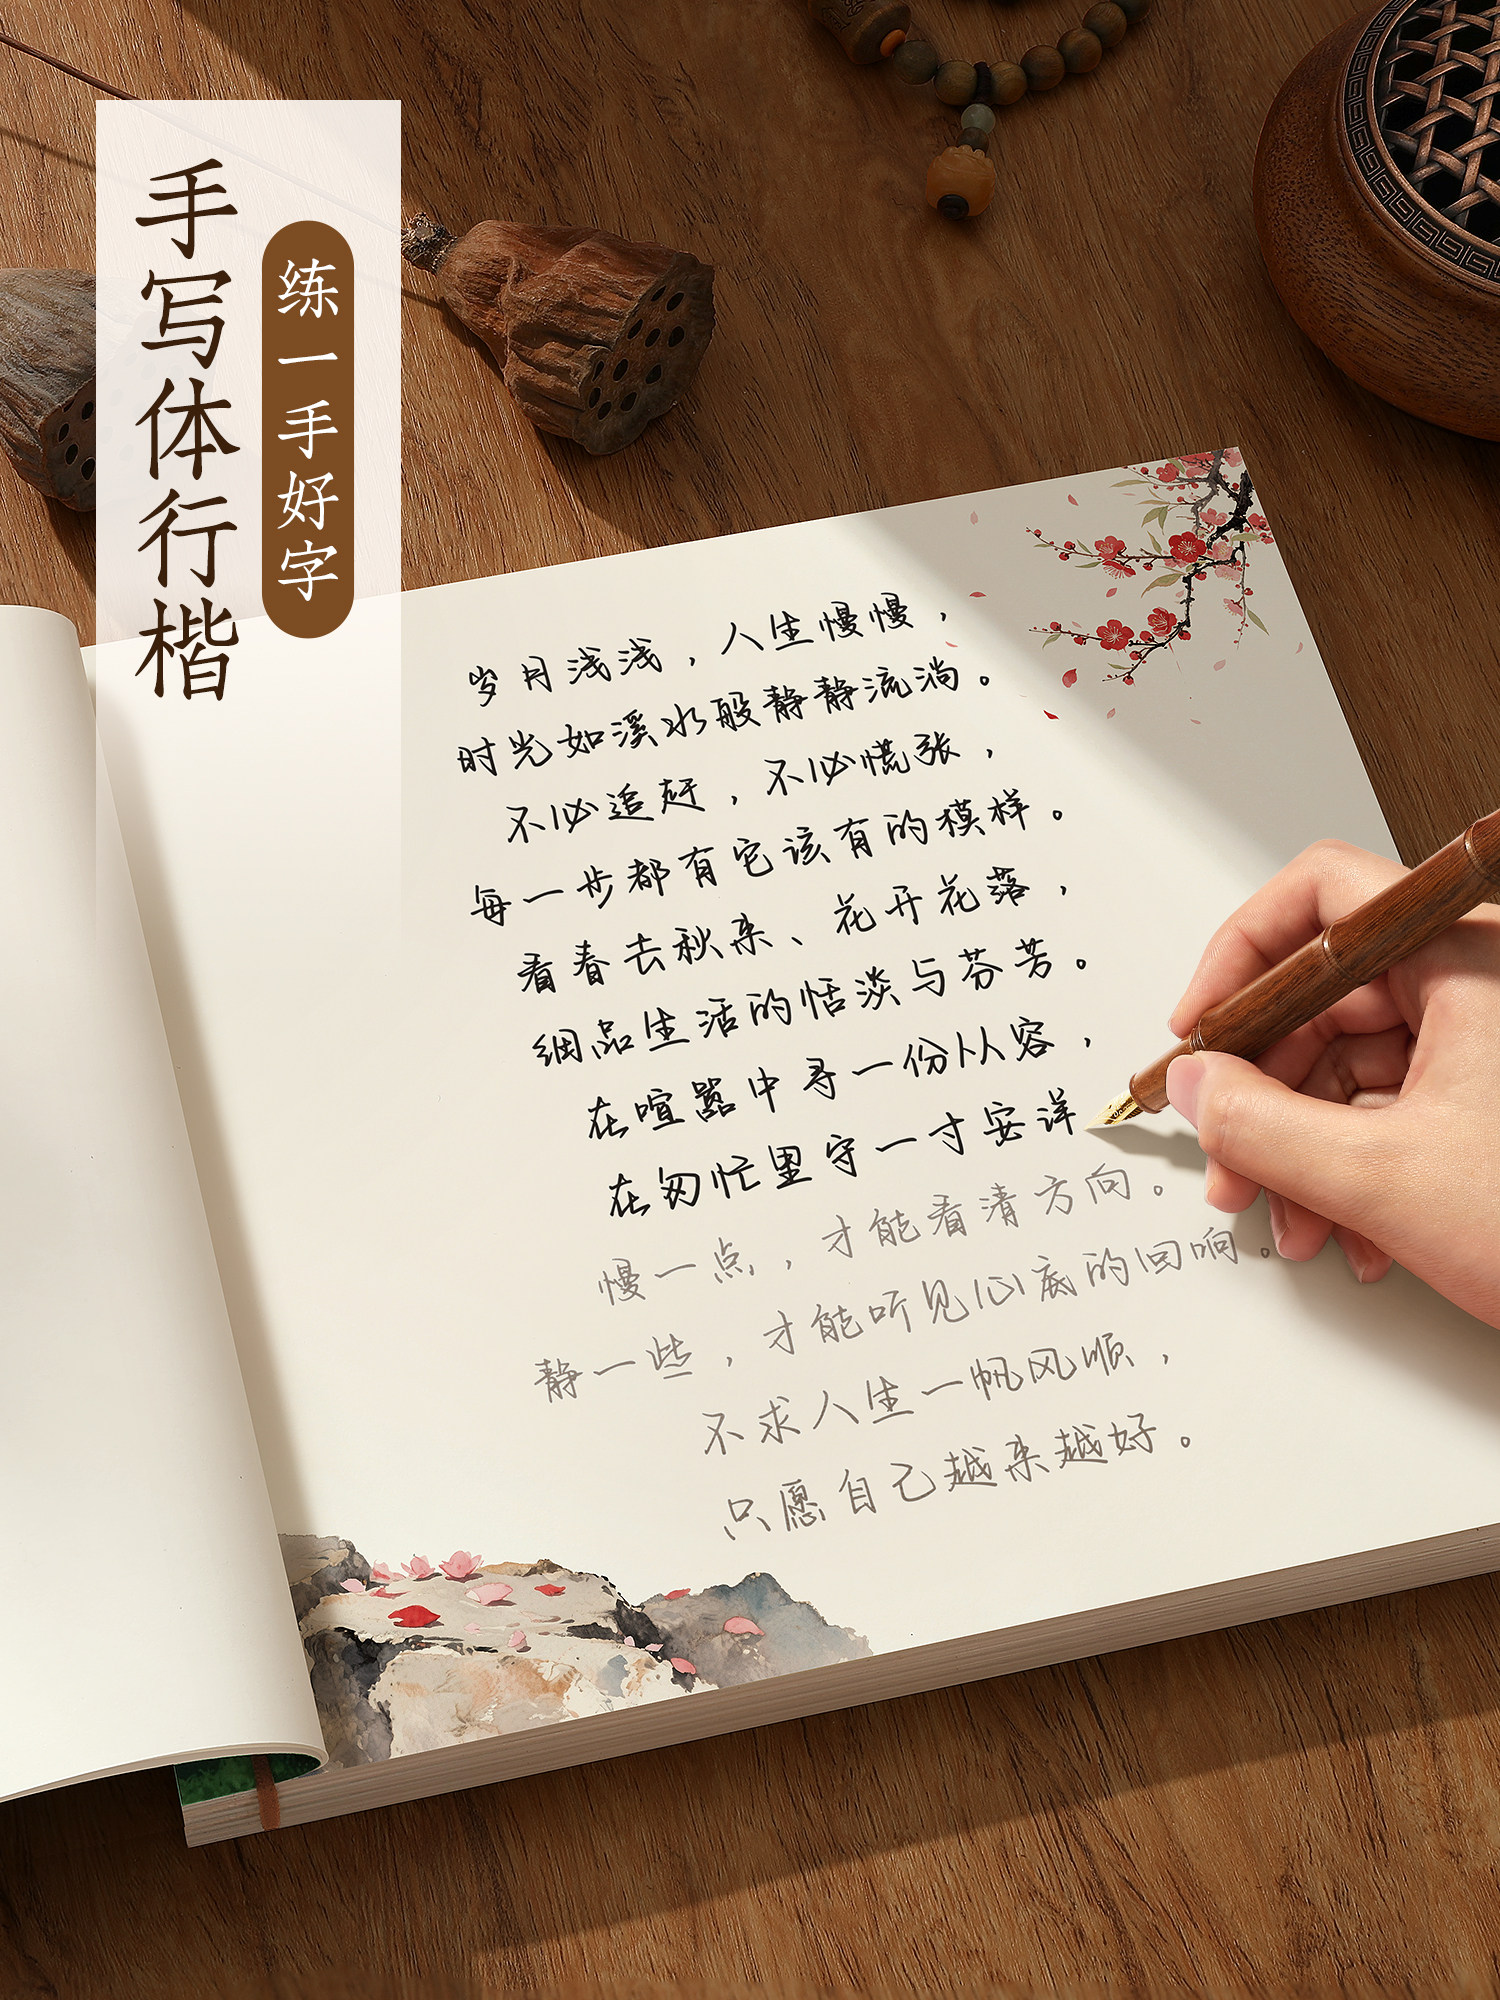 手写体行楷
练一手好字
岁月浅浅，人生慢慢，
时光如溪水般静静流淌。
不必追赶，不必慌张，
每一步都有它该有的模样。
看春去秋来、花开花落，
细品生活的恬淡与芬芳。
在喧嚣中寻一份从容，
在匆忙里守一寸安详
慢一点，才能看清方向。
静一些，才能听见心底的回响。
不求人生一帆风顺，
只愿自己越来越好。